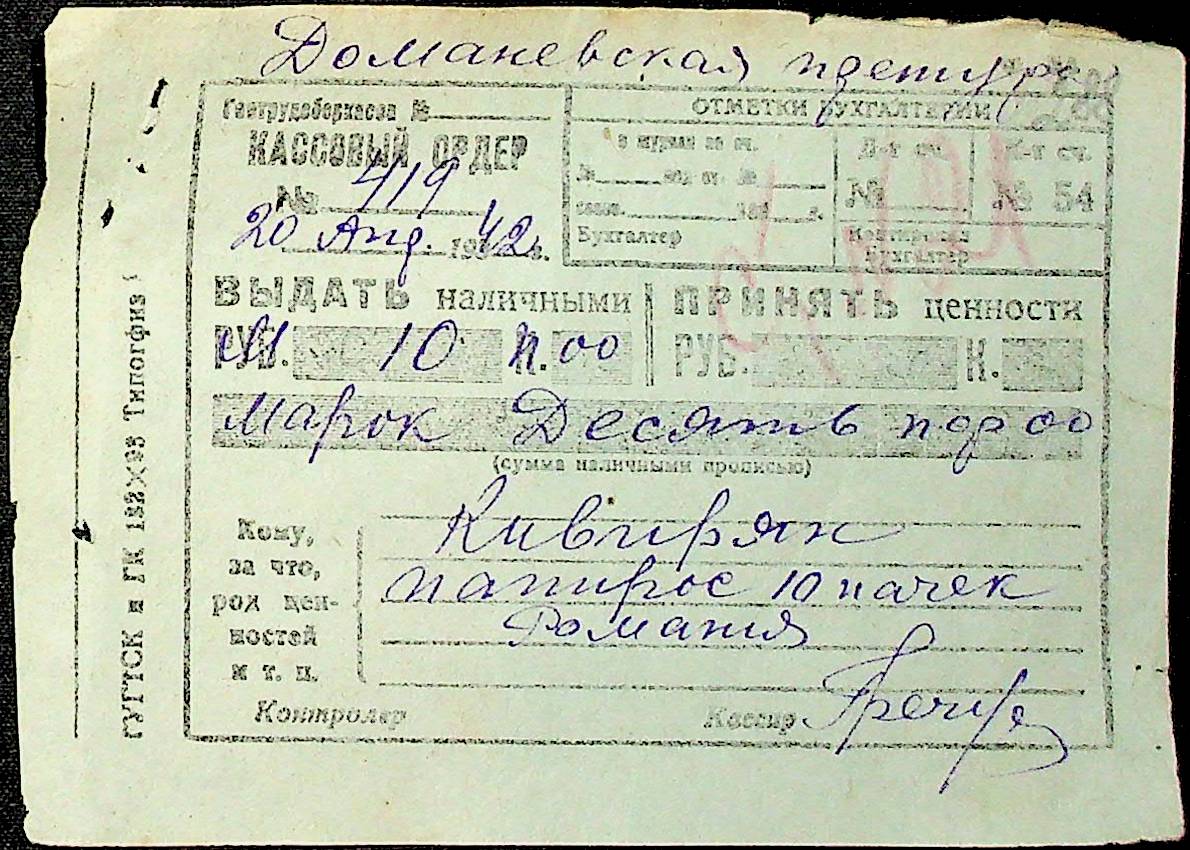 Доманевская претура
Гострудсберкасса №
КАССОВЫЙ ОРДЕР
№ 419
20 Апр. 1942 г.
ОТМЕТКИ БУХГАЛТЕРИИ
в журнал по сч.
№ под ст. №
всего 194 г.
Бухгалтер
Д-т сч.
№
К-т сч.
№ 54
Контировал
бухгалтер
ВЫДАТЬ наличными
РУБ. М 10 К. п. 00
ПРИНЯТЬ ценности
РУБ. К.
Марок Десять пф 00
(сумма наличными прописью)
Кому,
за что,
род цен-
ностей
и т. п.
Кивирян
папирос 10 пачек
Романия
Контролер
Кассир
ГУГТСК и ГК 132×93 Типогфия